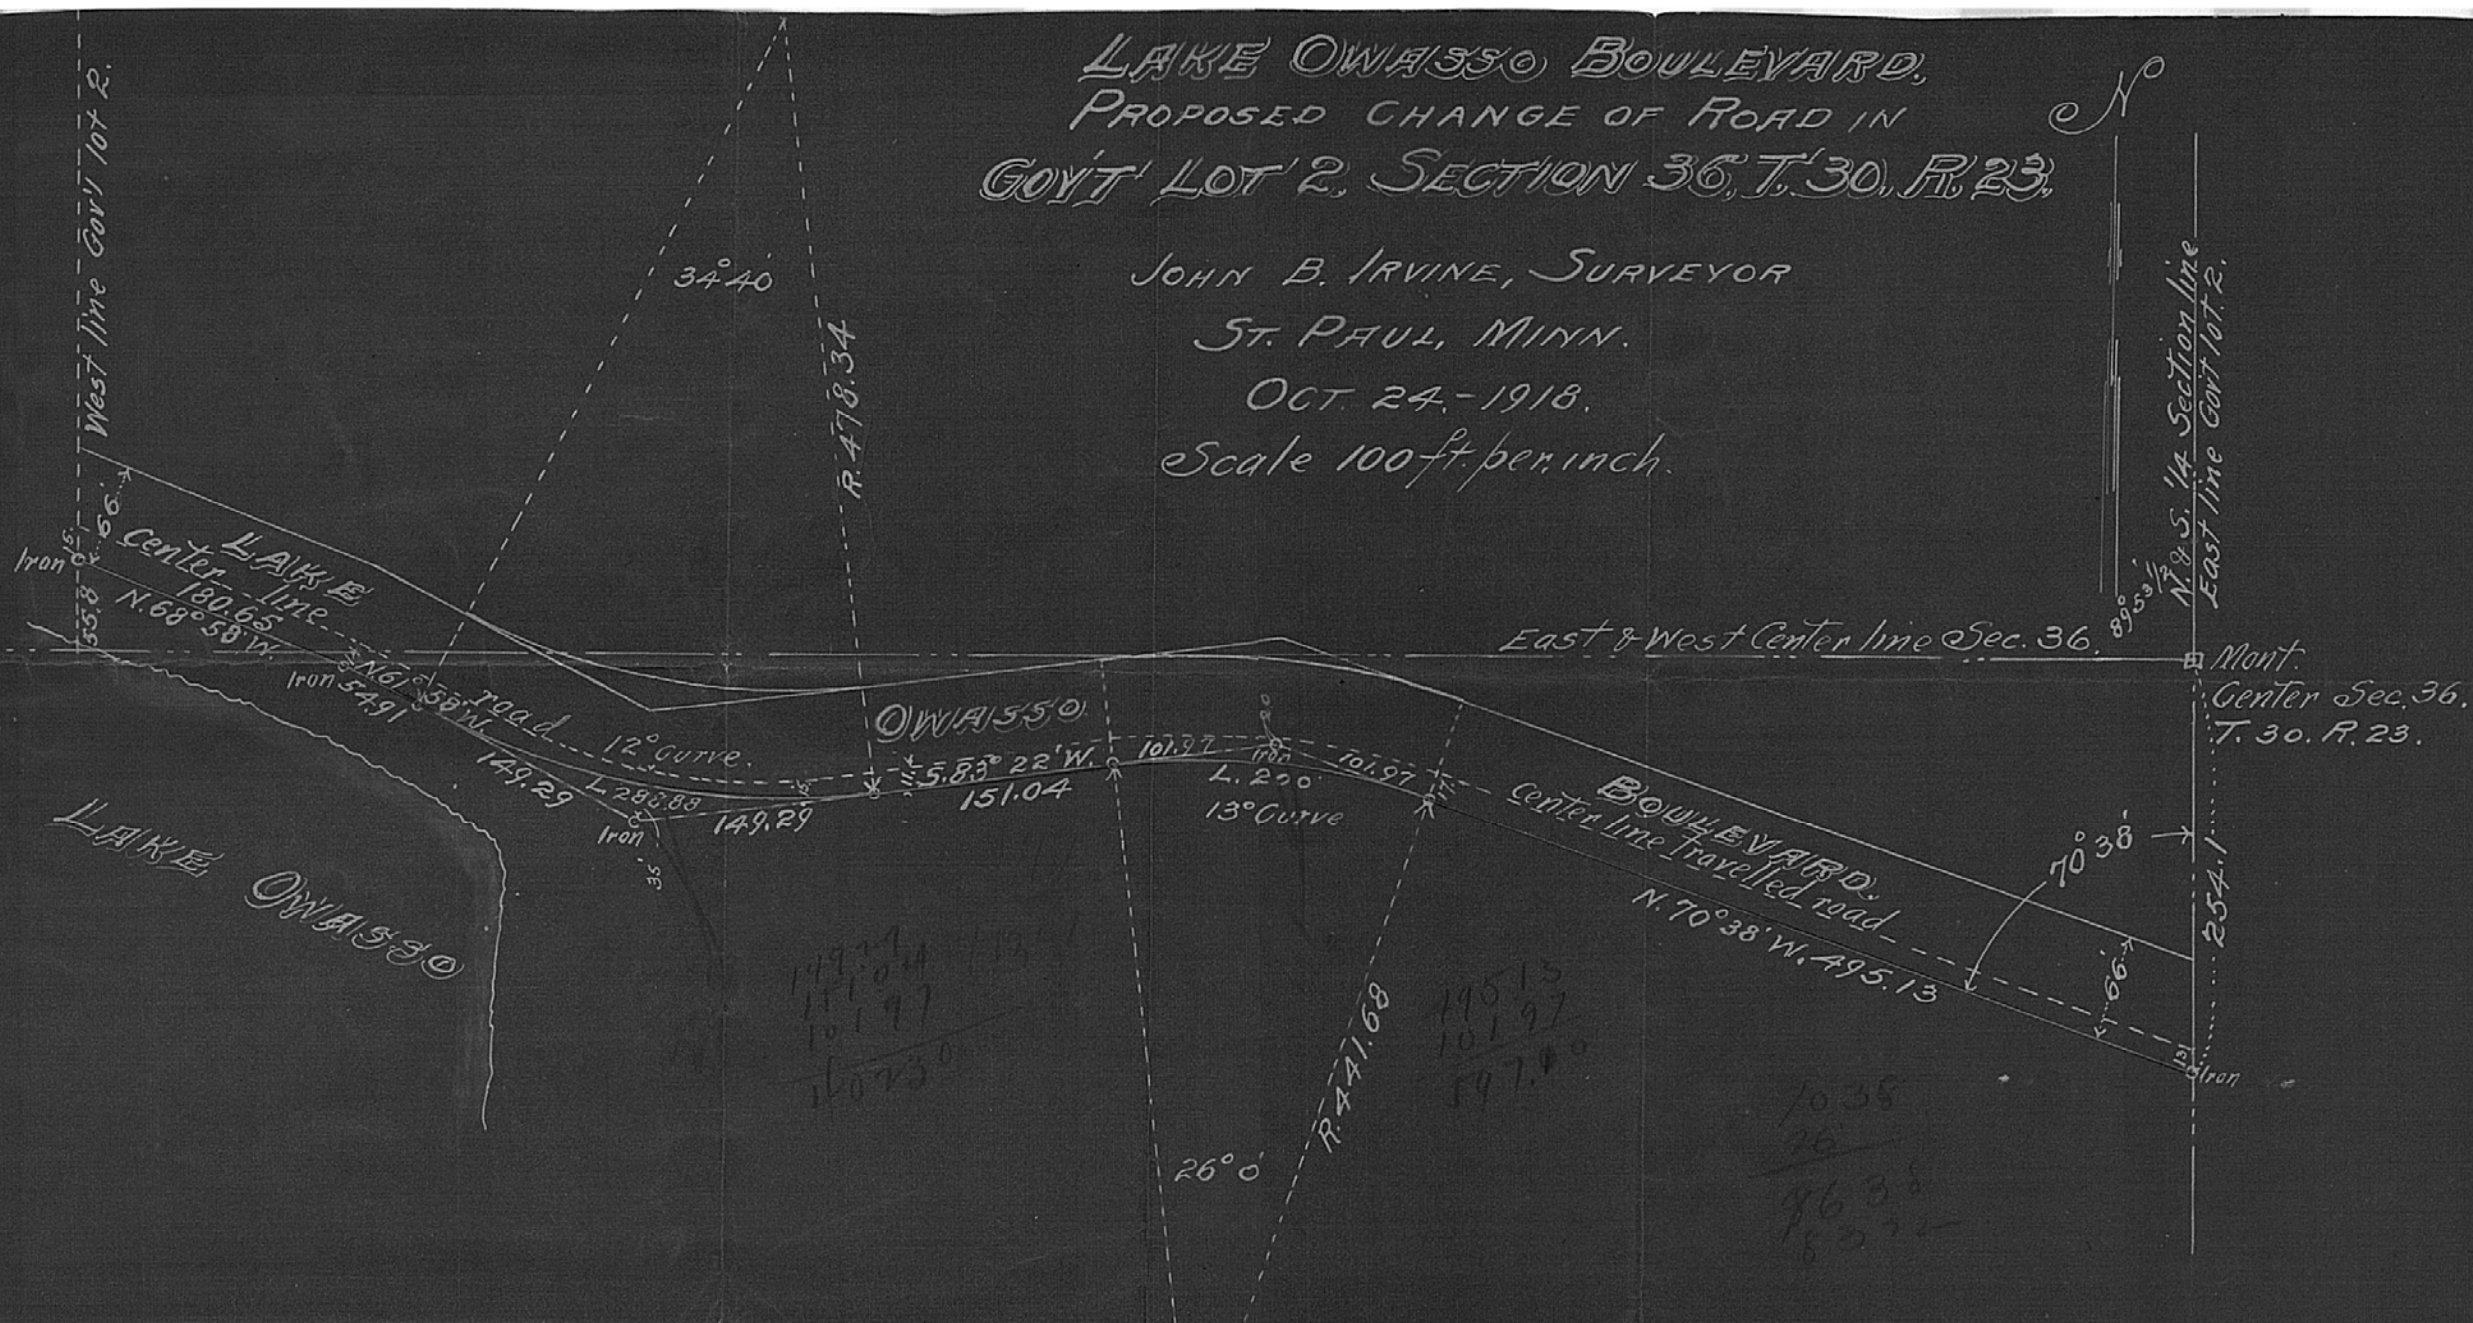 LAKE OWASSO BOULEVARD.
PROPOSED CHANGE OF ROAD IN
GOV'T LOT 2, SECTION 36, T. 30, R. 23.
JOHN B. IRVINE, SURVEYOR
ST. PAUL, MINN.
OCT. 24.-1918.
Scale 100 ft. per. inch.
N
West line Gov't lot 2.
34°40'
R. 478.34
N. & S. 1/4 Section line
East line Gov't lot. 2.
89° 53 1/2'
66'
Iron
15.
55.8
LAKE
Center line
180.65
N. 68° 58' W.
Iron
54.91
N. 61° 58' W.
road
12° Curve.
149.29
L. 288.88
Iron
149.29
35
OWASSO
11.
S. 83° 22' W.
151.04
101.97
20
Iron
L. 200
13° Curve
101.97
17.
East & West Center line Sec. 36.
Mont.
Center Sec. 36.
T. 30. R. 23.
BOULEVARD.
Center line Travelled road
N. 70° 38' W. 495.13
70° 38'
254.1
66'
13
Iron
LAKE
OWASSO
26° 0'
R. 441.68
10197
49513
10197
1038
26